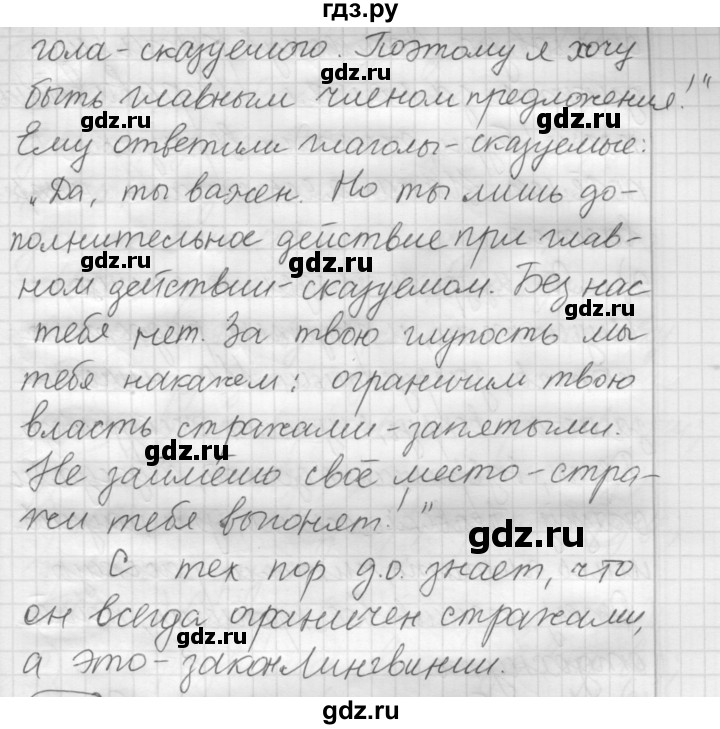 гдз.ру
гола-сказуемого. Поэтому я хочу
gdz.ru
быть главным членом предложения!"
gdz.ru gdz.ru
Ему ответили глаголы-сказуемые:
„Да, ты важен. Но ты лишь до-
полнительное действие при глав-
gdz.ru gdz.ru
ном действии-сказуемом. Без нас
gdz.ru
тебя нет. За твою глупость мы
тебя накажем: ограничим твою
власть стражами-запятыми.
gdz.ru
Не займёшь своё место-стра-
жи тебя выгонят!"
gdz.ru
С тех пор д.о. знает, что
он всегда ограничен стражами,
gdz.ru
а это-закон Лингвинии.
gdz.ru